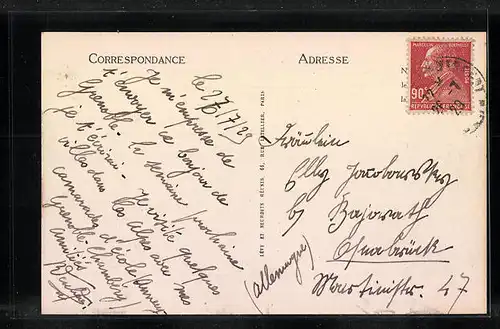 CORRESPONDANCE
le 27/7/29
Je m'empresse de
t'envoyer ce bonjour de
Grenoble. La semaine prochaine
je t'écrirai. Je visite quelques
villes dans les alpes avec mes
camarades d'école (Annecy
Grenoble, Chambéry)
amitiés
LÉVY ET NEURDEIN RÉUNIS, 44, RUE LETELLIER, PARIS
ADRESSE
MARCELIN BERTHELOT
90c
Fräulein
Elly Jacobowsky
b/ Bajarath
Osnabrück
(Allemagne)
Martinistr. 47